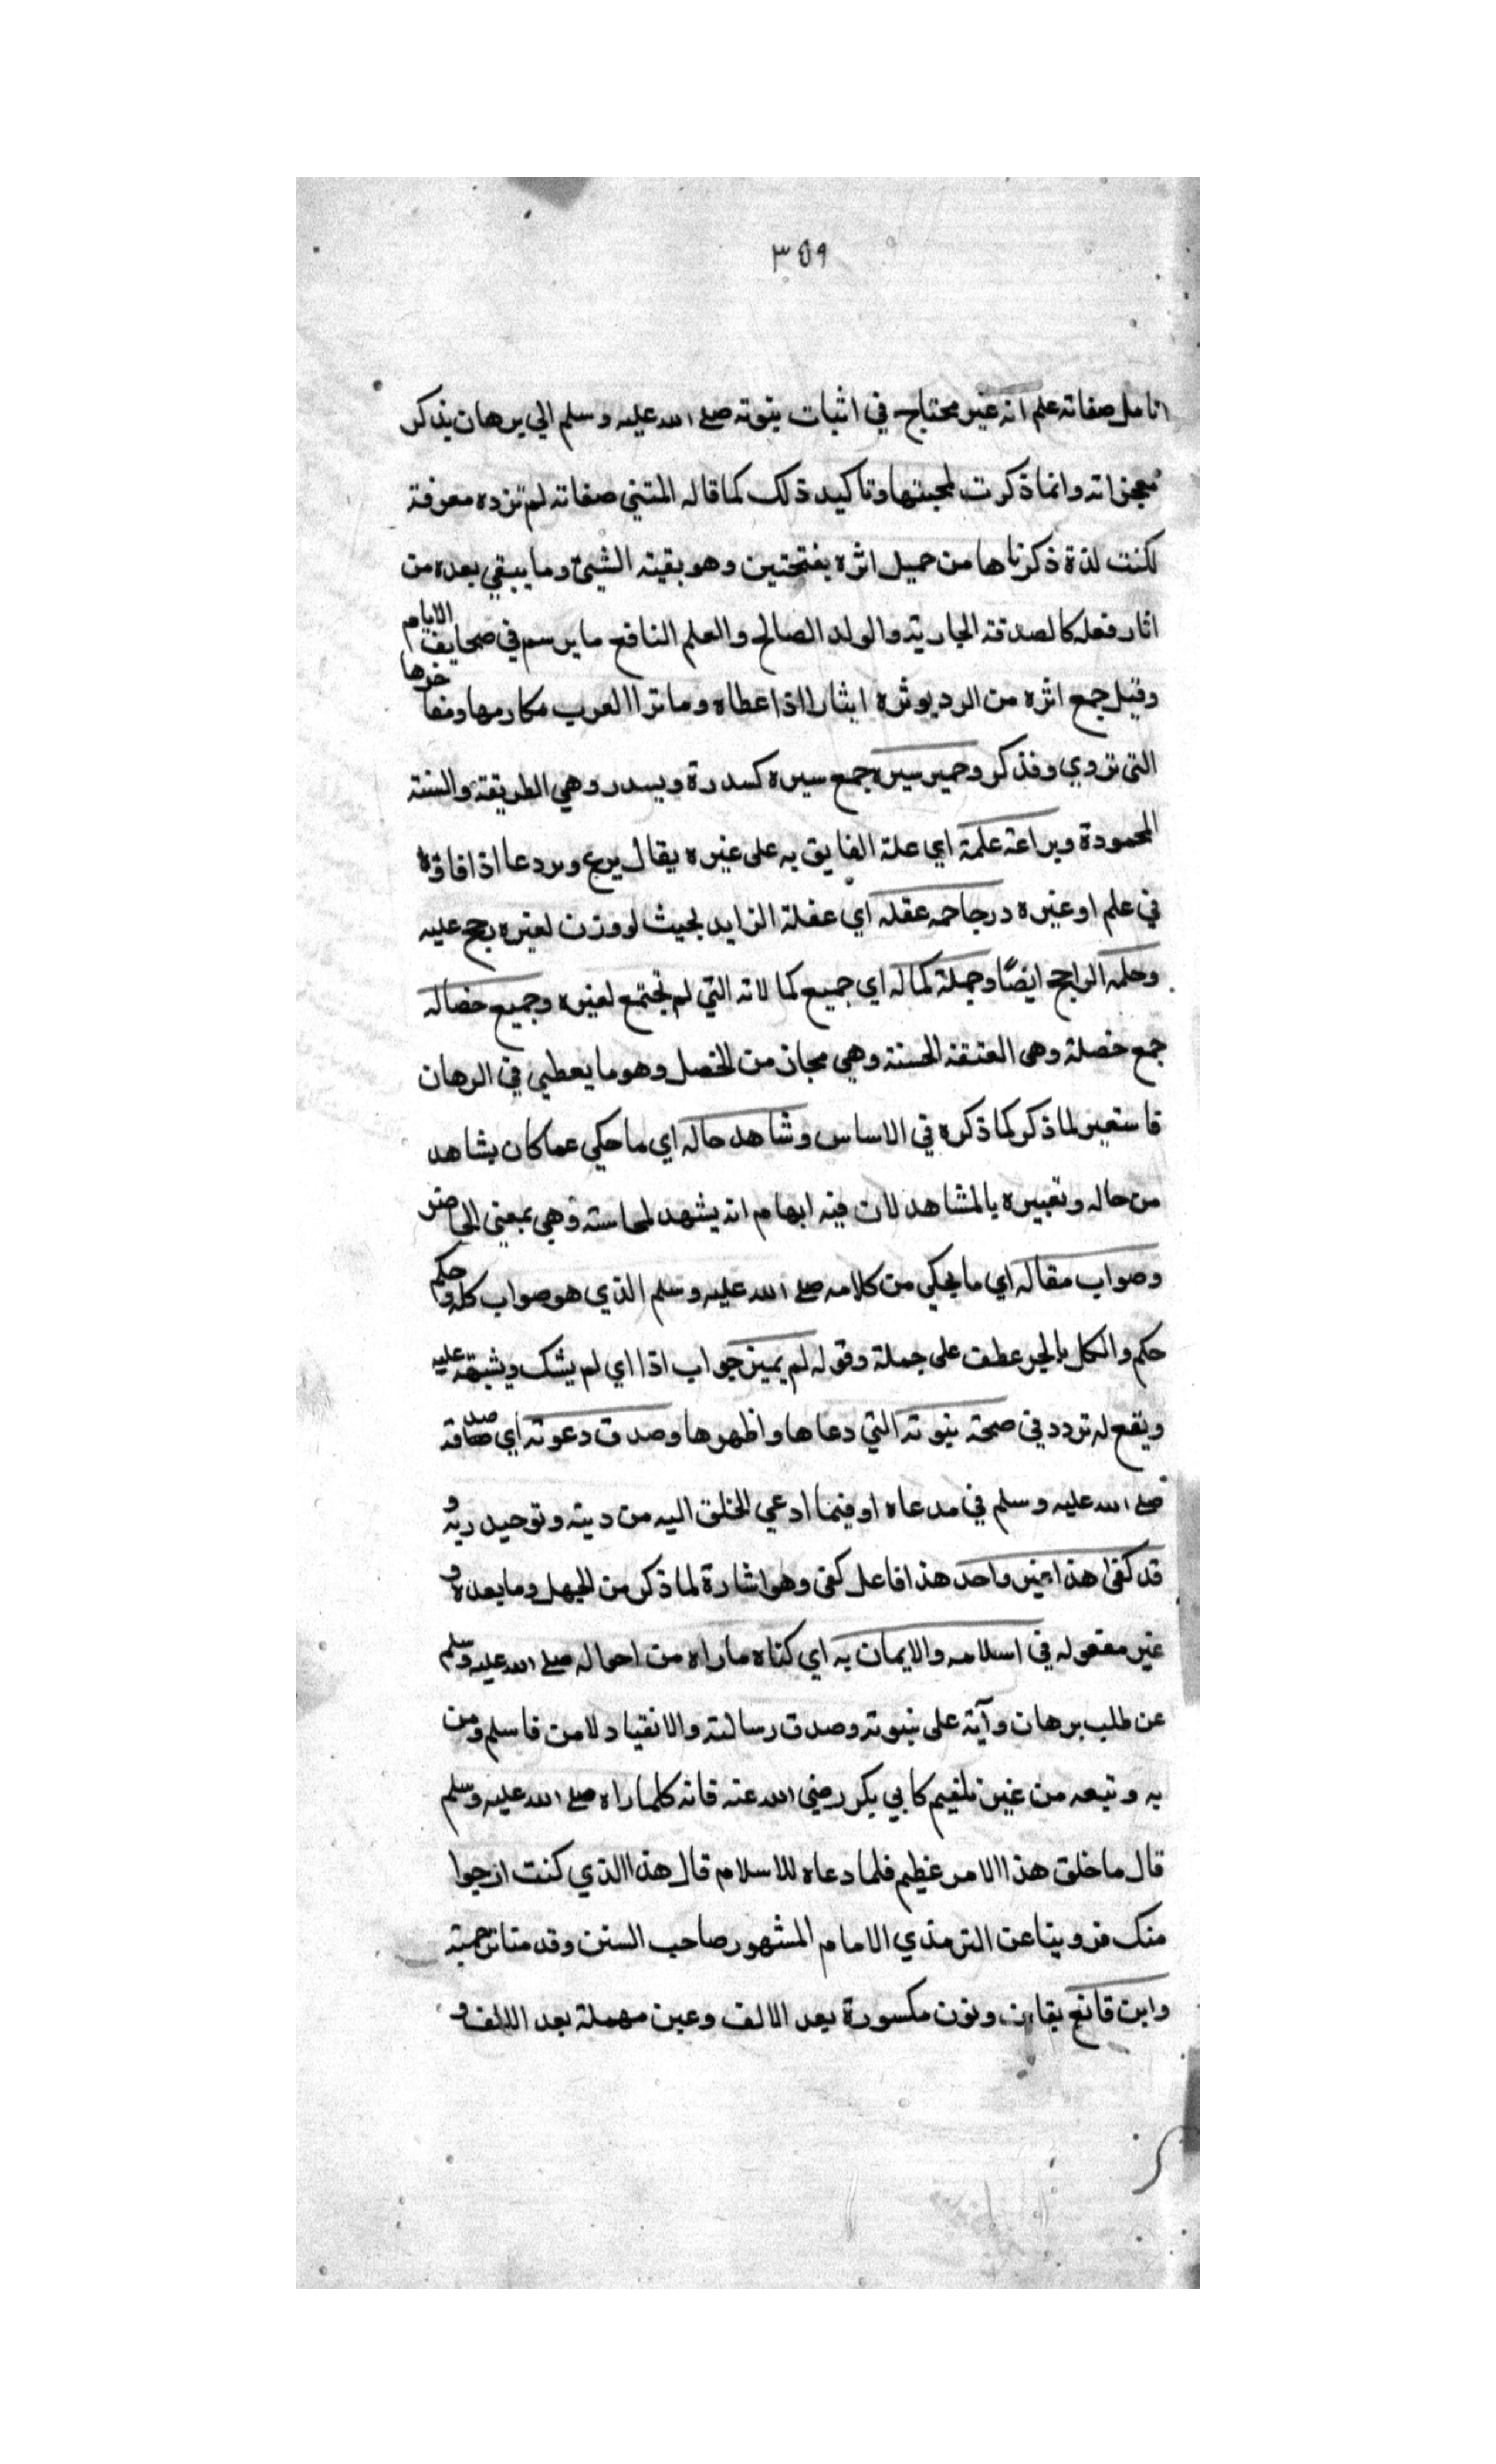 ٣٥٩
تامل صفاته علم انه غير محتاج في اثبات نبوته صلى الله عليه وسلم الي برهان بذكر
معجزاته وانما ذكرت لمحبتها وتاكيد ذلك كما قاله المتنبي صفاته لم تزده معرفة
لكنت لذة ذكرناها من جميل اثره بفتحتين وهو بقية الشيئ وما يبقي بعده من
اثار فعله كالصدقة الجارية والولد الصالح والعلم النافع ما يرسم في صحايف الايام
وقيل جمع اثره من الرد يوثره ايثارا اذا عطاه وماترا العرب مكارمها ومفاخرها
التي تروي وفذكر وحمير سيره جمع سيره كسدرة ويسدر وهي الطريقة والسنة
المحمودة وبراعة علمة اي علة الفايق به على غيره يقال برع وبردعا اذا فاقه
في علم او غيره درجاحه عقله اي عقلة الزايد بحيث لو وزن لغيره رجح عليه
وحلمه الراجح ايضًا وجملة كماله اي جميع كمالاته التي لم تجتمع لغيره وجميع خصاله
جمع خصلة وهى الحسنة وهي مجاز من الخصل وهو ما يعطي في الرهان
فاستعير لما ذكر كما ذكره في الاساس وشاهد حاله اي ما حكي عما كان يشاهد
من حاله وتعبيره بالمشاهد لان فيه ابهام انه يشهد لمحاسنه وهي بمعنى الحاضر
وصواب مقاله اي ما يحكي من كلامه صلى الله عليه وسلم الذي هو صواب كله وحكم
حكم والكل بالجر عطف على جملة وقوله لم يميز جواب اذا اي لم يشك ويشبته عليه
ويقع له تردد في صحة نبوته التي دعاها واظهرها وصدق دعوته اي صداقة
صلى الله عليه وسلم في مدعاه او فيما ادعي الخلق اليه من دينه وتوحيد ربه و
قد كفى هذا غير واحد هذا فاعل كفى وهو اشارة لما ذكر من الجهل وما بعده و
غير مفعوله في اسلامه والايمان به اي كفاه ماراه من احواله صلى الله عليه وسلم
عن طلب برهان وآية على نبوته وصدق رسالته والانقياد لامن فاسلم ومن
به وتبعه من غير تلعيم كابي بكر رضى الله عنه فانه كلماراه صلى الله عليه وسلم
قال ما خلق هذا الامر عظيم فلما دعاه للاسلام قال هذا الذي كنت ارجوا
منك فروينا عن الترمذي الامام المشهور صاحب السنن وقدمنا ترجمته
وابن قانع بقاف ونون مكسورة بعد الالف وعين مهملة بعد الالف و